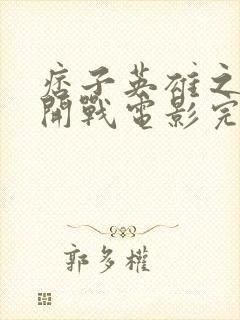 痞子英雄之
開戰電影完
郭多權